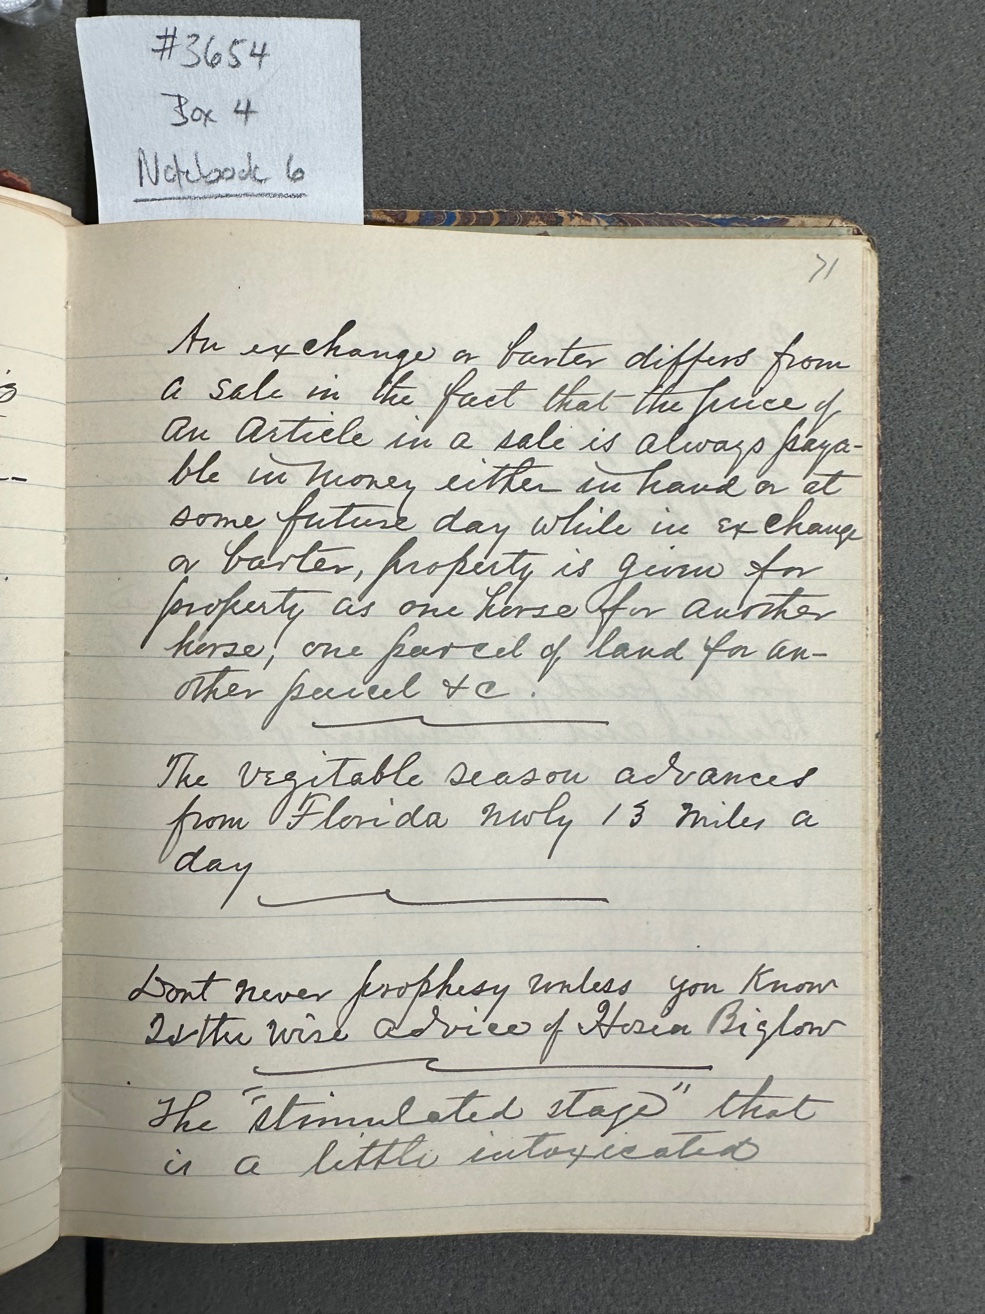 #3654
Box 4
Notebook 6
71
An exchange or barter differs from
a sale in the fact that the price of
an article in a sale is always paya-
ble in money either in hand or at
some future day while in exchange
or barter, property is given for
property as one horse for another
horse, one parcel of land for an-
other parcel &c.
The vegitable season advances
from Florida north 13 miles a
day
Dont never prophesy unless you know
Is the wise advice of Hosea Biglow
The "stimulated stage" that
is a little intoxicated